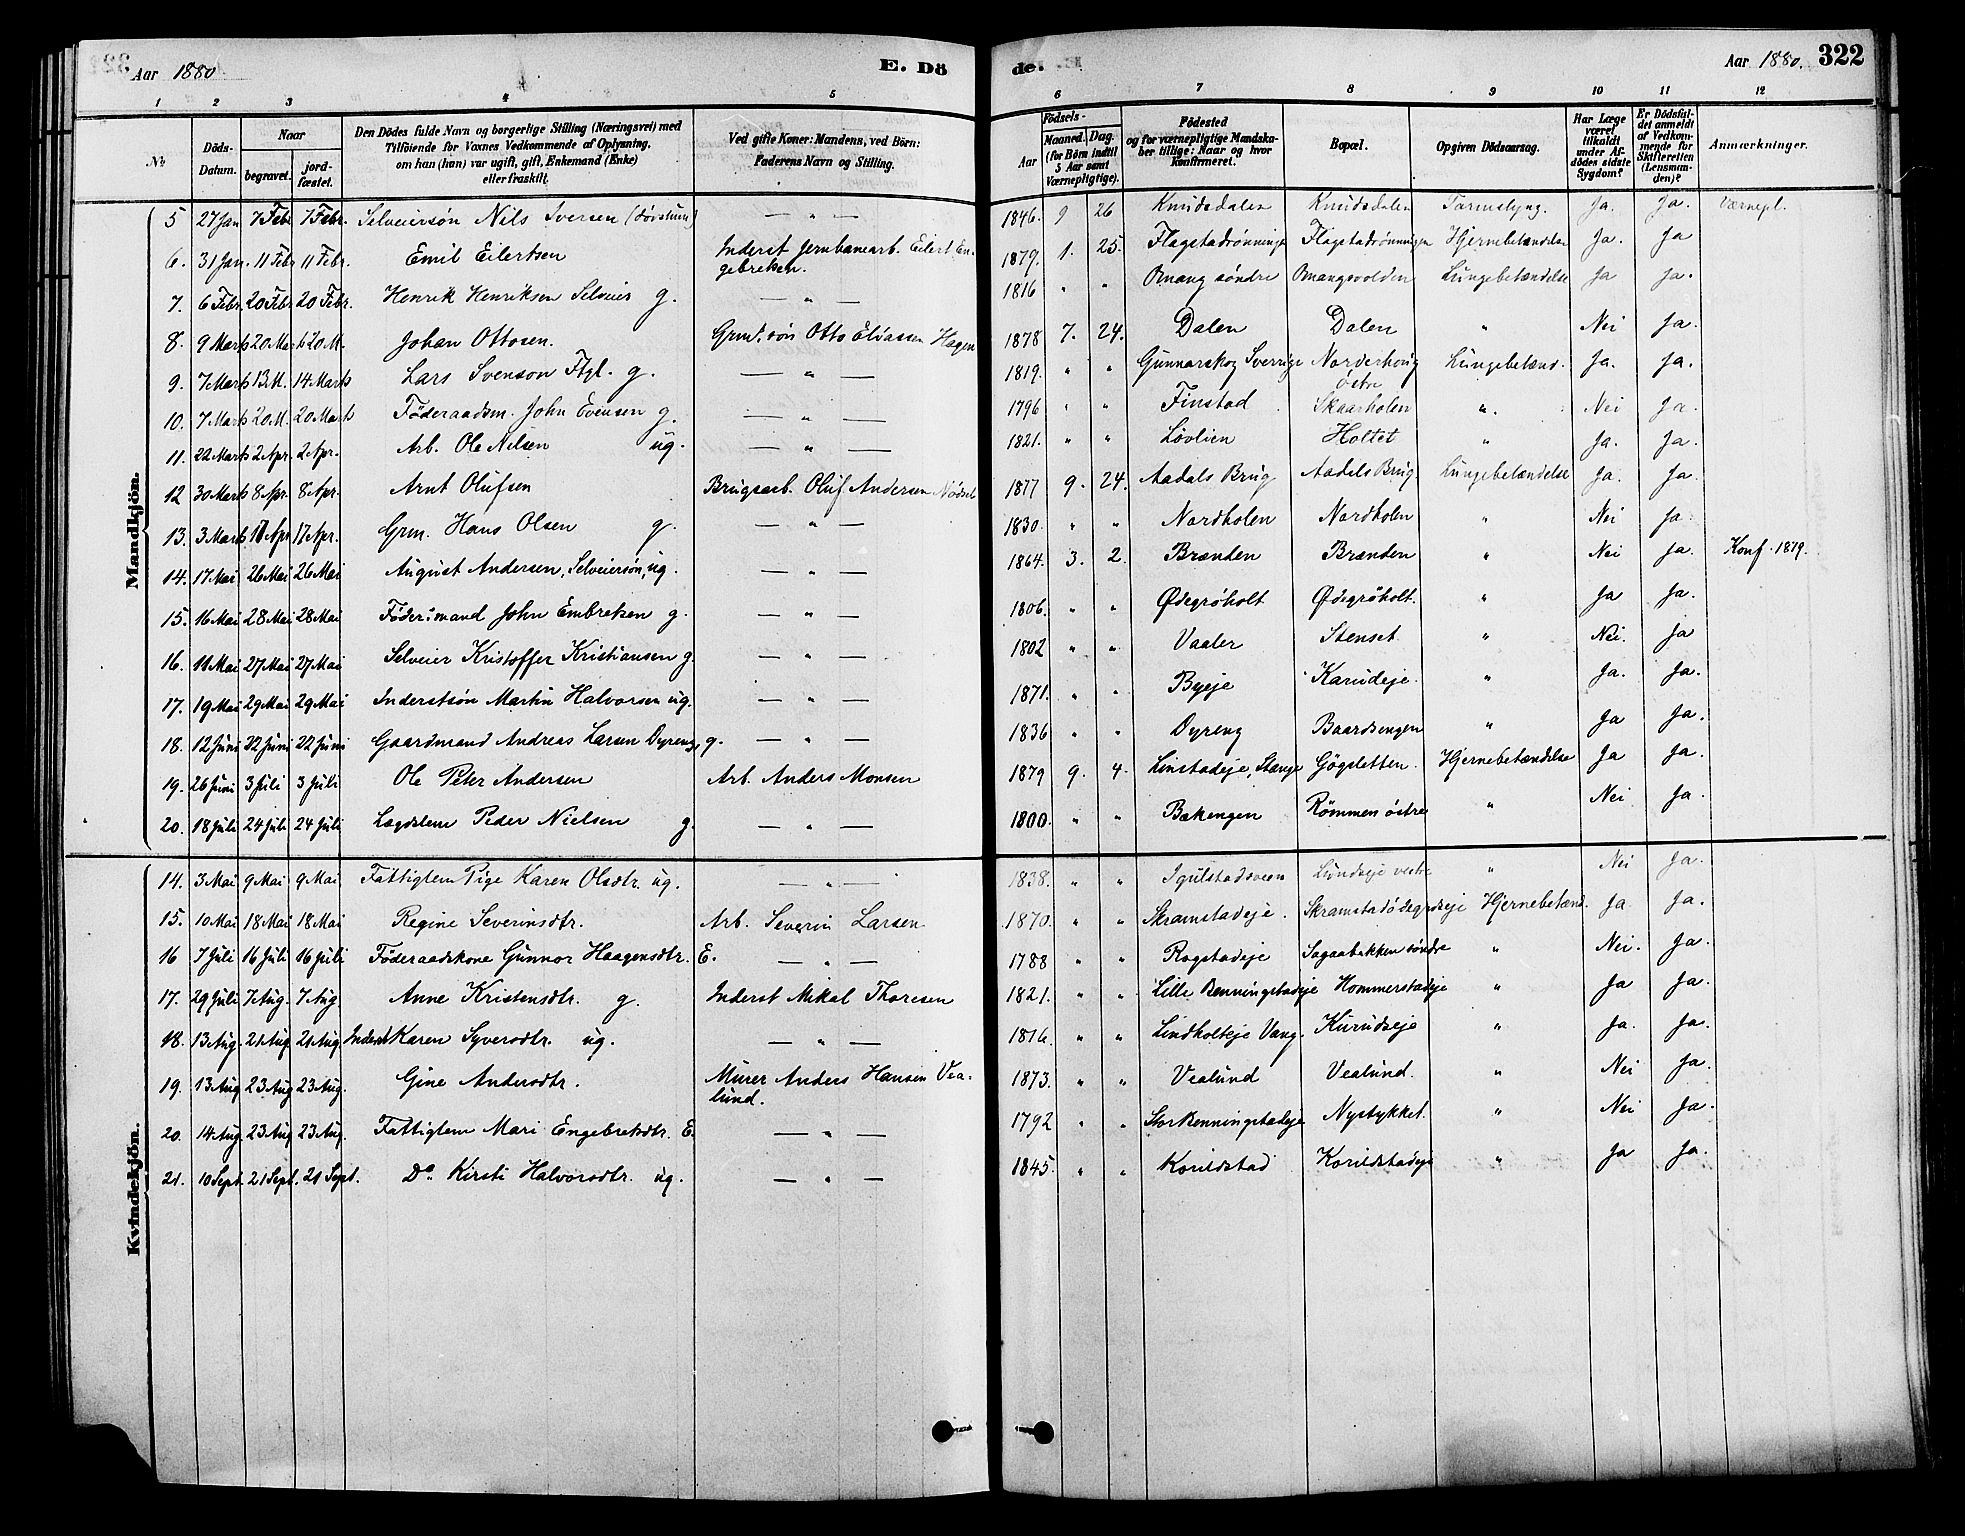 Aar 1880
E. Dö
de.
Aar 1880.
322
1 2 3 4 5 6 7 8 9 10 11 12
№
Döds-
Datum.
Naar
begravet.
jord-
fæstet.
Den Dödes fulde Navn og borgerlige Stilling (Næringsvei) med
Tilföiende for Voxnes Vedkommende af Oplysning,
om han (hun) var ugift, gift, Enkemand (Enke)
eller fraskilt.
Ved gifte Koner: Mandens, ved Börn:
Faderens Navn og Stilling.
Födsels-
Aar
Maaned. Dag.
(for Börn indtil
5 Aar samt
Værnepligtige).
Födested
og for værnepligtige Mandska-
ber tillige: Naar og hvor
Konfirmeret.
Bopæl.
Opgiven Dödsaarsag.
Har Læge
været
tilkaldt
under Af-
dödes sidste
Sygdom?
Er Dödsfal-
det anmeldt
af Vedkom-
mende for
Skifteretten
(Lensman-
den)?
Anmærkninger.
Mandkjön.
5 27 Jan 7 Febr 7 Febr. Selveiersön Nils Iversen (dövstum) — " — 1846. 9 26 Knudsdalen Knudsdalen Tarmslyng. Ja. Ja. Værnepl.
6. 31 Jan. 11 Febr 11 Febr. Emil Eilertsen Inderst Jernbanearb. Eilert En-
gebretsen. 1879. 1. 25. Flagstadrönningen Flagstadrönningen Hjernebetændelse Ja. Ja
7. 6 Febr. 20 Febr. 20 Febr. Henrik Henriksen Selveier g. — " — 1816 " " Omang söndre Omangsvolden Lungebetændelse Ja Ja.
8. 9 Marts 20 Marts 20 M. Johan Ottosen. Grmd.sön Otto Eliassen Hagen 1878 7. 24. Dalen Dalen " Nei Ja.
9. 7 Marts 13 M. 14 Marts Lars Svenson Ftgl. g. — " — 1819. " " Gunnarskog Sverrige Norderhoug
östre Lungebetænd. Ja. Ja.
10. 7 Marts 20 M. 20 Marts Föderaadsm. John Evensen g. — " — 1796 " " Finstad Skaarholen " Nei Ja.
11. 22 Marts 2 Apr. 2 Apr. Arb. Ole Nilsen ug. — " — 1821. " " Lövlien Holtet " Ja. Ja.
12 30 Marts 8 Apr. 8 Apr. Arnt Olufsen Brugsarb. Oluf Andersen 1877 9. 24. Aadals Brug Aadals Brug Lungebetændelse Ja. Ja.
13. 3 Marts 17 Apr 17 Apr. Grm. Hans Olsen g. — " — 1830. " " Nordholen Nordholen " Nei Ja.
14. 17 Mai 26 Mai 26 Mai August Andersen, Selveiersön, ug. — " — 1864. 3. 2. Brænden Brænden " Nei Ja. Konf. 1879.
15. 16 Mai 28 Mai 28 Mai Föder:mand John Embretsen g. — " — 1806. " " Ødegröholt Ødegröholt. " Ja Ja.
16. 11 Mai 27 Mai 27 Mai Selveier Kristoffer Kristiansen g. — " — 1802 " " Vaaler Stenset " Nei. Ja
17. 19 Mai 29 Mai 29 Mai Inderstsön Martin Halvorsen ug. — " — 1871. " " Byeje Karudeje. " Ja. Ja.
18. 12 Juni 22 Juni 22 Juni Gaardmand Andreas Larsen Dyreng, g. — " — 1836 " " Dyreng Baardsengen " Ja Ja.
19. 26 Juni 3 Juli 3 Juli Ole Peter Andersen Arb. Anders Monsen 1879 9. 4. Linstadeje, Stange Gögsletten. Hjernebetændelse Ja Ja.
20. 18 Juli 24 Juli 24 Juli Lægdslem Peder Nielsen g. — " — 1800. " " Bakengen Römmen östre " Nei Ja.
Kvindekjön.
14. 3 Mai 9 Mai 9 Mai Fattiglem Pige Karen Olsdtr. ug. — " — 1838. " " Lundseje vestre " Nei Ja.
15. 10 Mai 18 Mai 18 Mai Regine Severinsdtr. Arb. Severin Larsen 1870. " " Skramstadeje. Skramstadödegrdseje Hjernebetænd. Ja Ja.
16 7 Juli 16 Juli 16 Juli Föderaadskone Gunnor Haagensdtr. E. — " — 1788 " " Rogstadeje Sagaabakken söndre " Nei. Ja.
17. 29 Juli 7 Aug. 7 Aug. Anne Kristensdtr. g. Inderst Mikal Thoresen 1821. " " Lille Benningstadeje Hommerstadeje " Ja Ja.
18. 13 Aug. 21 Aug. 21 Aug. Inderst Karen Syversdtr. ug. — " — 1816. " " Lindholteje Vang. Kurudseje " Ja. Ja.
19. 13 Aug 23 Aug 23 Aug. Gine Andersdtr. Murer Anders Hansen Vea-
lund. 1873. " " Vealund Vealund. " Nei Ja.
20. 14 Aug 23 Aug 23 Aug. Fattiglem Mari Engebretsdtr. E. — " — 1792 " " Stor Benningstadeje Nystykket. " Nei Ja.
21. 10 Sept. 21 Sept. 21 Sept. Do. Kirsti Halvorsdtr. ug. — " — 1845. " " Korildstad Korildstadeje " Ja Ja.